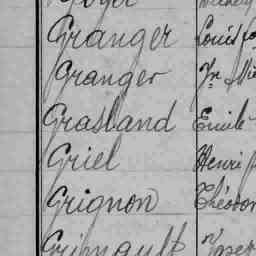 Granger Louis
Granger
Grasland Emile
Griel Henri
Grignon Théodor
Grignault Josep